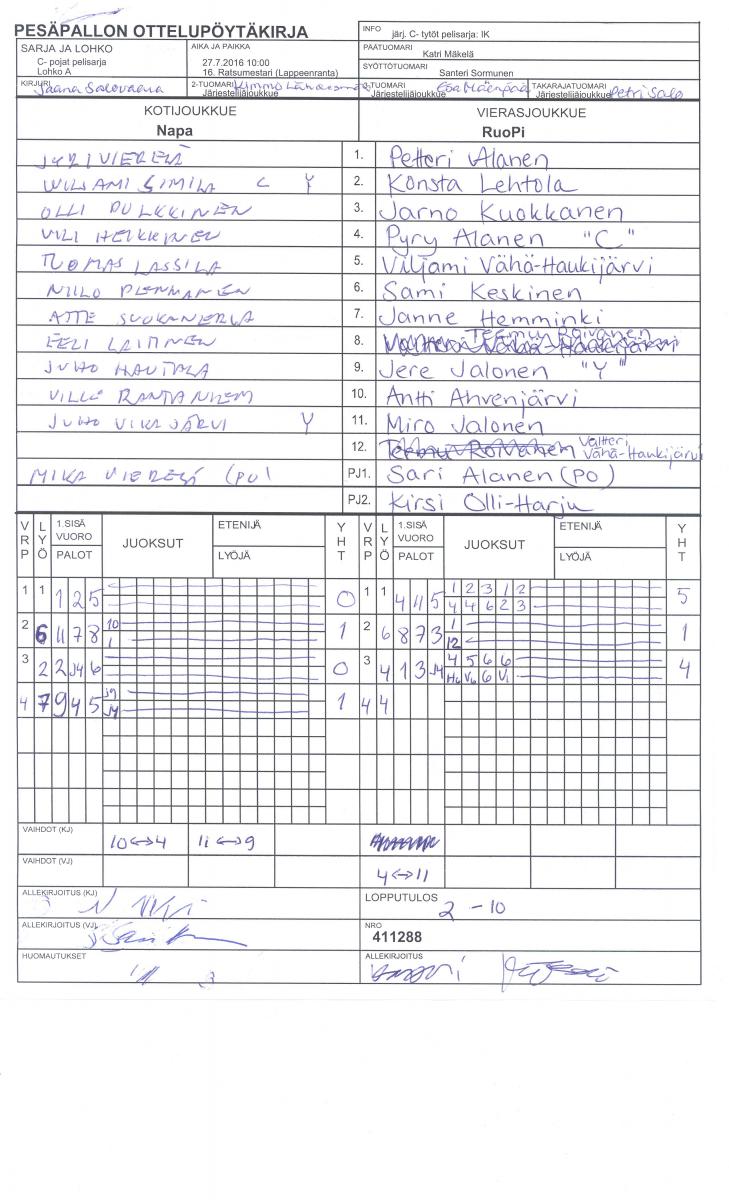 PESÄPALLON OTTELUPÖYTÄKIRJA
INFO järj. C- tytöt pelisarja: IK
SARJA JA LOHKO
C- pojat pelisarja
Lohko A
AIKA JA PAIKKA
27.7.2016 10:00
16. Ratsumestari (Lappeenranta)
PÄÄTUOMARI
Katri Mäkelä
SYÖTTÖTUOMARI
Santeri Sormunen
KIRJURI Jaana Salovaara
2-TUOMARI Kimmo
Järjestelijäjoukkue
3-TUOMARI Esa Mäenpää
Järjestelijäjoukkue
TAKARAJATUOMARI
Järjestelijäjoukkue Petri Salo
KOTIJOUKKUE
Napa
VIERASJOUKKUE
RuoPi
JYRI VIERELÄ 1. Petteri Alanen
WILJAMI SIMILÄ C Y 2. Konsta Lehtola
OLLI PULKKINEN 3. Jarno Kuokkanen
VILI HEIKKINEN 4. Pyry Alanen "C"
TUOMAS LASSILA 5. Viljami Vähä-Haukijärvi
NIILO PENNANEN 6. Sami Keskinen
ATTE SUOKANERVA 7. Janne Hemminki
EELI LAITINEN 8. Teemu Roivanen
JUHO HAUTALA 9. Jere Jalonen "Y"
VILLE RANTANIEMI 10. Antti Ahvenjärvi
JUHO VIKAJÄRVI Y 11. Miro Jalonen
12. Valtteri Vähä-Haukijärvi
MIKA (PJ) PJ1. Sari Alanen (PO)
PJ2. Kirsi Olli-Harju
VRP LYÖ 1.SISÄ VUORO PALOT JUOKSUT ETENIJÄ LYÖJÄ YHT VRP LYÖ 1.SISÄ VUORO PALOT JUOKSUT ETENIJÄ LYÖJÄ YHT
1 1 1 2 5 0 1 1 4 11 5 1 2 3 1 2 5
4 4 6 2 3
2 6 11 7 8 10 1 2 6 8 7 3 1 1
1 12
3 2 2 J4 6 0 3 4 1 3 J4 4 5 6 6 4
6
4 7 9 4 5 J9 1 4 4
J4
VAIHDOT (KJ) 10↔4 11↔9
VAIHDOT (VJ) 4↔11
ALLEKIRJOITUS (KJ)
LOPPUTULOS 2 - 10
ALLEKIRJOITUS (VJ)
NRO
411288
HUOMAUTUKSET
ALLEKIRJOITUS